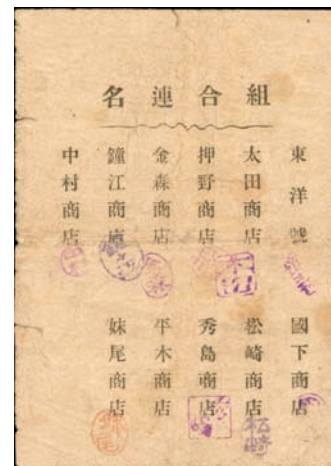 組合連名
東洋號
太田商店
押野商店
金森商店
鐘江商店
中村商店
國下商店
松崎商店
秀島商店
平木商店
妹尾商店
松崎